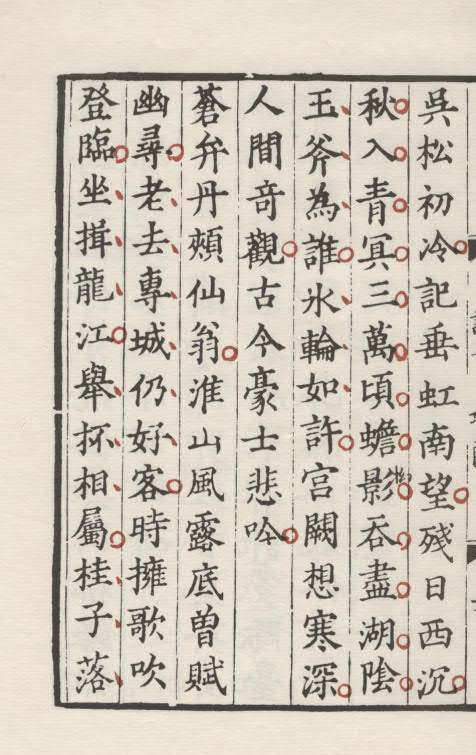 吳松初冷記垂虹南望殘日西沉
秋入青冥三萬頃蟾影吞盡湖陰
玉斧為誰氷輪如許宮闕想寒深
人間竒觀古今豪士悲吟
蒼弁丹頰仙翁淮山風露底曾賦
幽尋老去專城仍好客時擁歌吹
登臨坐揖龍江舉抔相屬桂子落